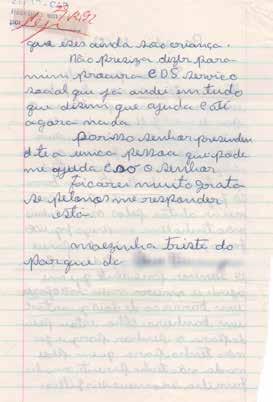 que eses ainda são criança.
Não presiza dizer para
mim procura CDS serviço
social que jai andei em tudo
que disim que ajuda e até
agora nada
porisso senhor presiden
dte a unica pessoa que pode
me ajuda e o senhor
ficarei muito grata
se pelo menos me responder
esta.
mãezinha triste do
parque da